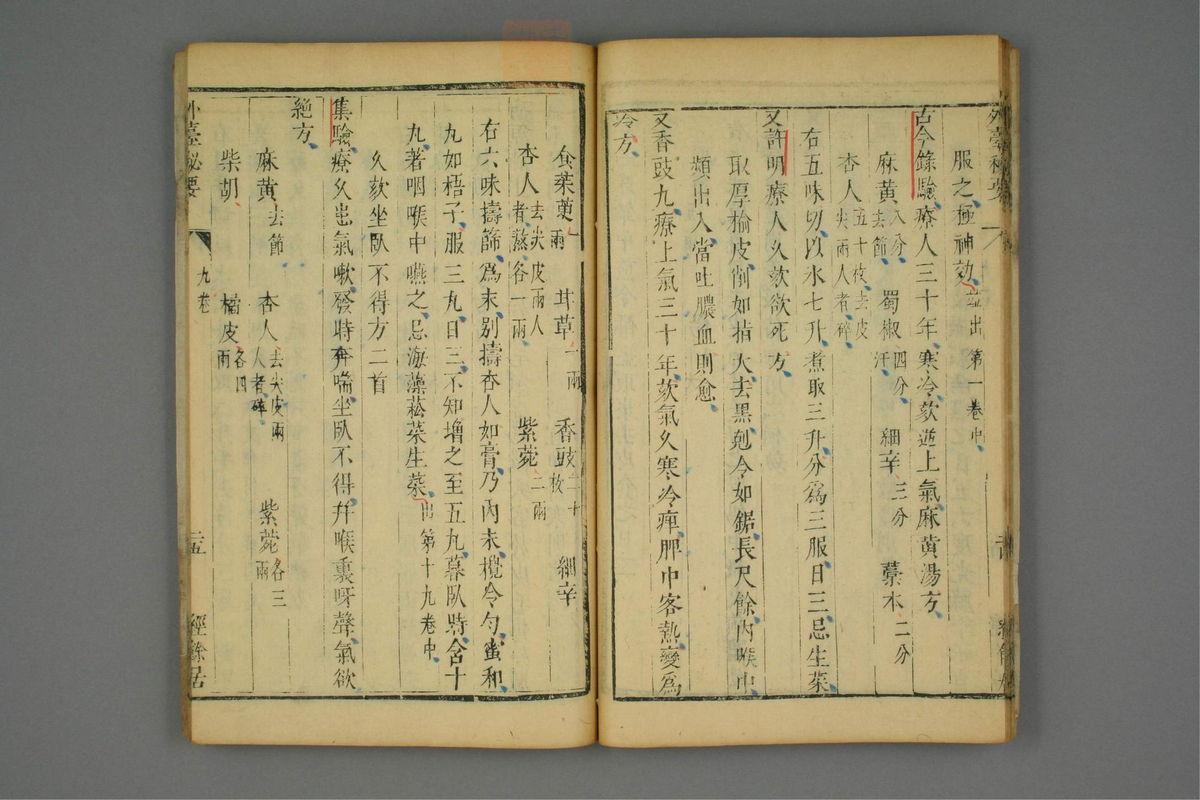 外臺秘要
服之極神効並出第一卷中
古今錄驗療人三十年寒冷欬逆上氣麻黃湯方
麻黃八分去節 蜀椒四分汗 細辛三分 藁本二分
杏人五十枚去皮尖兩人者碎
右五味切以水七升煮取三升分爲三服日三忌生菜
又許明療人久欬欲死方
取厚榆皮削如指大去黑剋令如鋸長尺餘內喉中
頻出入當吐膿血則愈
又香豉丸療上氣三十年欬氣久寒冷痺胛中客熱變爲
冷方
食茱萸一兩 甘草一兩 香豉二十枚 細辛
杏人去尖皮兩人者熬各一兩 紫菀二兩
右六味擣篩爲末別擣杏人如膏乃內末攪令勻蜜和
丸如梧子服三丸日三不知增之至五丸暮臥時含十
丸著咽喉中嚥之忌海藻菘菜生菜出第十九卷中
久欬坐臥不得方二首
集驗療久患氣嗽發時奔喘坐臥不得幷喉裏呀聲氣欲
絕方
麻黃去節 杏人去尖皮兩人者碎 紫菀各三兩
柴胡 橘皮各四兩
外臺秘要 九卷 二五 經餘居